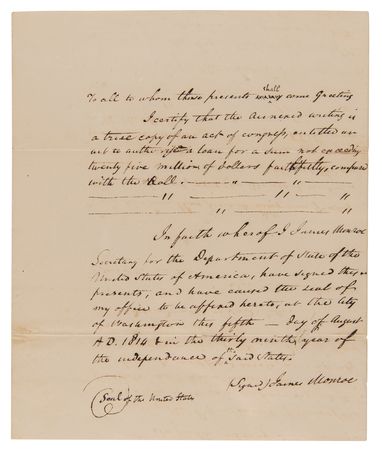 shall
To all to whom these presents may come Greeting
I certify that the Annexed writing is
a true copy of an act of congress, entitled an
act to authorize a loan for a sum not exceeding
twenty five million of dollars faithfully, compared
with the Roll. — " — " —
— " — " — "
— " — "
In faith whereof I James Monroe
Secretary for the Department of State of the
United States of America, have signed these
presents, and have caused the seal of
my office to be affixed hereto, at the City
of Washington this fifth — day of August
A.D. 1814 & in the thirty ninth year of
the independence of Said States.
(Signed) James Monroe
Seal of the United States